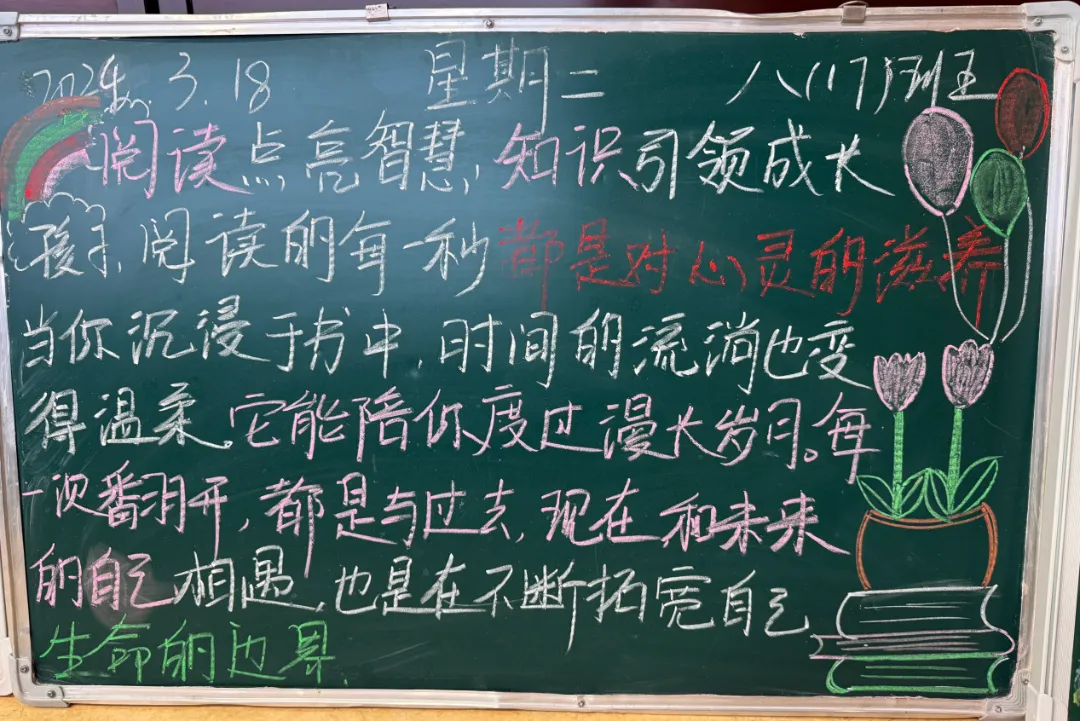 3.18 星期二 八(17)班
阅读点亮智慧,知识引领成长
孩子,阅读的每一秒都是对心灵的滋养
当你沉浸于书中,时间的流淌也变
得温柔。它能陪你度过漫长岁月。每
一次翻开,都是与过去,现在,和未来
的自己相遇,也是在不断拓宽自己
生命的边界.